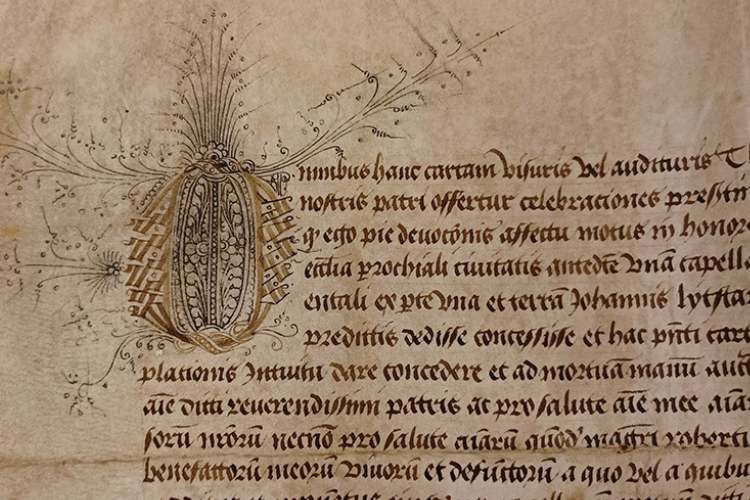 Omnibus hanc cartam visuris vel audituris
nostris patri offertur celebraciones
qͥ ego pie devocōnis affectu motus in honore
ecclīa prochiali civitatis antedc̄te unā capella
entali ex pte una et terrā Johannis
predittis dedisse concessisse et hac pn̄ti cart
plationis Intuitu dare concedere et ad mortuā manū
aīe dicti reverendissimi patris ac pro salute aīe mee aīar
sorū nr̄orū necnō pro salute aīarū quōd' magr̄i roberti
benefattorū meorū vivorū et defūctorū a quo vel a quibu